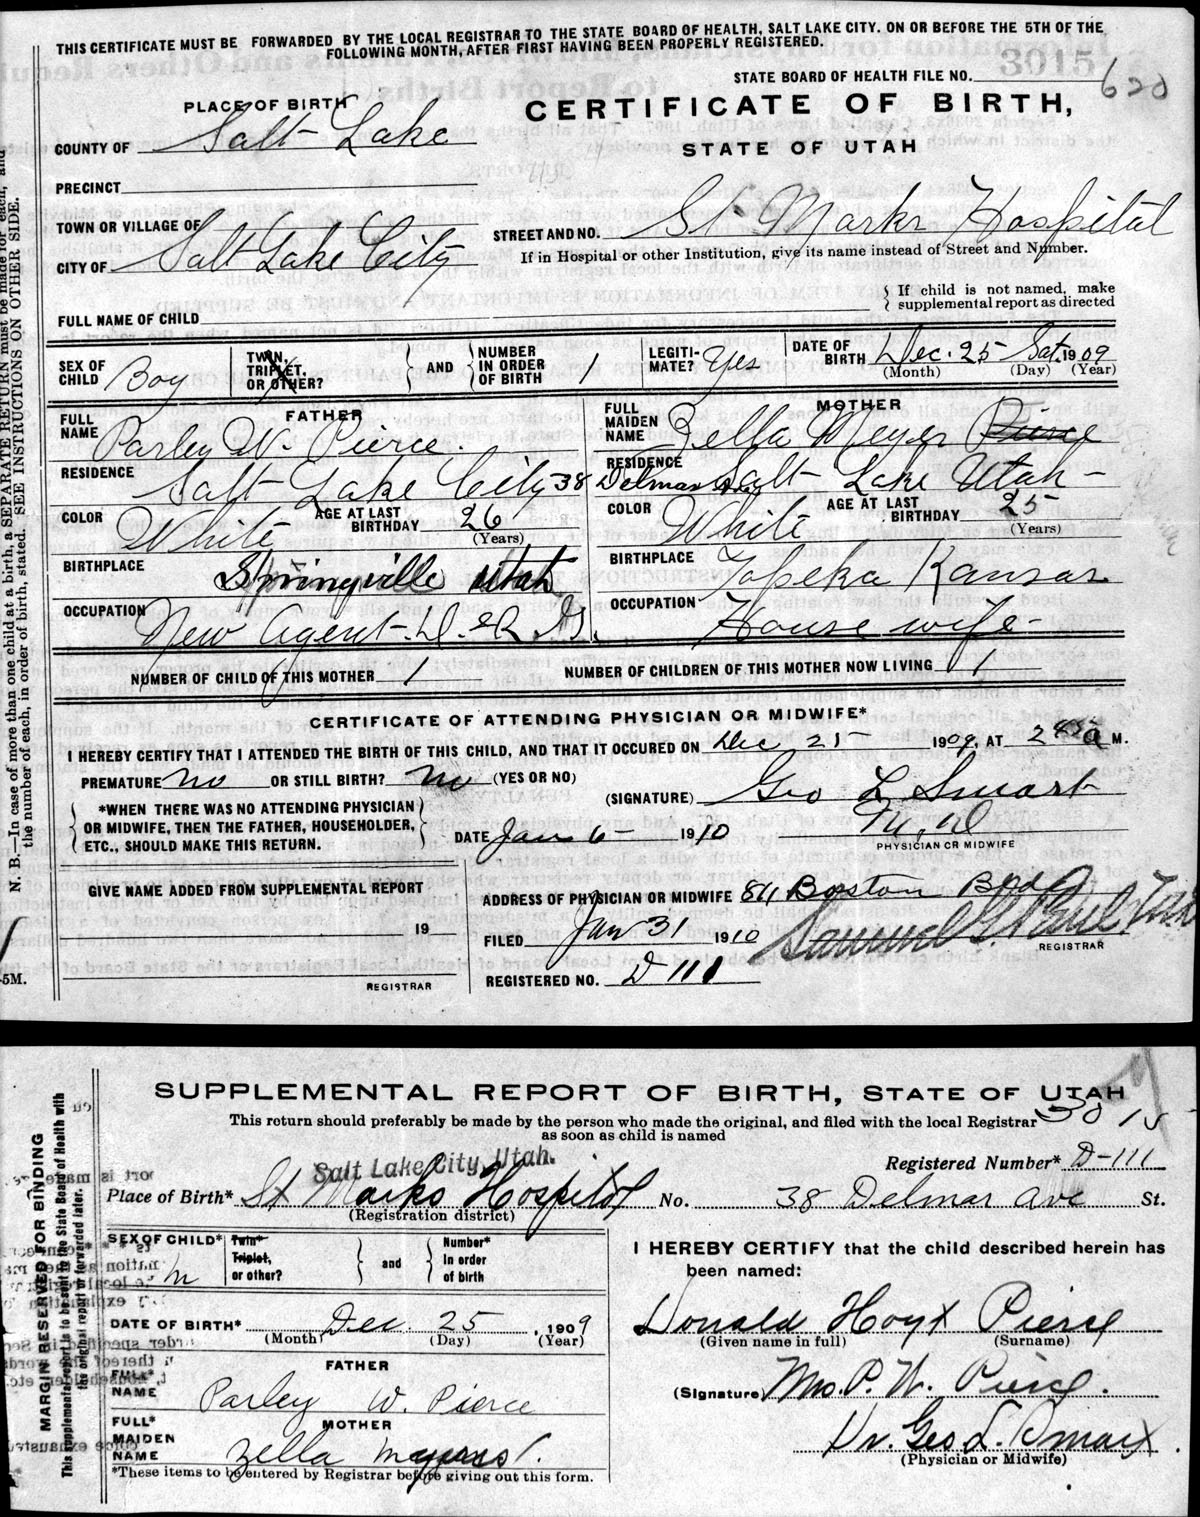 THIS CERTIFICATE MUST BE FORWARDED BY THE LOCAL REGISTRAR TO THE STATE BOARD OF HEALTH, SALT LAKE CITY. ON OR BEFORE THE 5TH OF THE
FOLLOWING MONTH, AFTER FIRST HAVING BEEN PROPERLY REGISTERED.
STATE BOARD OF HEALTH FILE NO. 3015 620
PLACE OF BIRTH
CERTIFICATE OF BIRTH,
COUNTY OF Salt Lake
STATE OF UTAH
PRECINCT
TOWN OR VILLAGE OF
STREET AND NO. St Marks Hospital
CITY OF Salt Lake City
If in Hospital or other Institution, give its name instead of Street and Number.
FULL NAME OF CHILD
If child is not named, make
supplemental report as directed
SEX OF CHILD Boy
TWIN, TRIPLET, OR OTHER?
AND
NUMBER IN ORDER OF BIRTH 1
LEGITI-MATE? Yes
DATE OF BIRTH Dec. 25 Sat. 1909
(Month) (Day) (Year)
FATHER
MOTHER
FULL NAME Parley W. Pierce.
FULL MAIDEN NAME Zella Meyer Pierce
RESIDENCE Salt Lake City 38 Delmar Ave
RESIDENCE Salt Lake Utah
COLOR White
AGE AT LAST BIRTHDAY 26 (Years)
COLOR White
AGE AT LAST BIRTHDAY 25 (Years)
BIRTHPLACE Springville Utah
BIRTHPLACE Topeka Kansas
OCCUPATION New Agent
OCCUPATION House wife
NUMBER OF CHILD OF THIS MOTHER 1
NUMBER OF CHILDREN OF THIS MOTHER NOW LIVING 1
CERTIFICATE OF ATTENDING PHYSICIAN OR MIDWIFE*
I HEREBY CERTIFY THAT I ATTENDED THE BIRTH OF THIS CHILD, AND THAT IT OCCURED ON Dec 25 1909, AT 2 a M.
PREMATURE no OR STILL BIRTH? no (YES OR NO)
(SIGNATURE) Geo L Smart
*WHEN THERE WAS NO ATTENDING PHYSICIAN
OR MIDWIFE, THEN THE FATHER, HOUSEHOLDER,
ETC., SHOULD MAKE THIS RETURN.
DATE Jan 6 1910
M.D
PHYSICIAN OR MIDWIFE
GIVE NAME ADDED FROM SUPPLEMENTAL REPORT
19
REGISTRAR
ADDRESS OF PHYSICIAN OR MIDWIFE 811 Boston Bldg
FILED Jan 31 1910
Samuel G. Paul
REGISTRAR
REGISTERED NO. D 111
N. B.—In case of more than one child at a birth, a SEPARATE RETURN must be made for each, and
the number of each, in order of birth, stated. SEE INSTRUCTIONS ON OTHER SIDE.
5M.
SUPPLEMENTAL REPORT OF BIRTH, STATE OF UTAH
This return should preferably be made by the person who made the original, and filed with the local Registrar
as soon as child is named
3015
Salt Lake City, Utah.
Registered Number* D-111
Place of Birth* St Marks Hospital No. 38 Delmar Ave St.
(Registration district)
SEX OF CHILD* m
Twin* Triplet, or other?
and
Number* In order of birth
I HEREBY CERTIFY that the child described herein has
been named:
DATE OF BIRTH* Dec. 25, 1909
(Month) (Day) (Year)
Donald Hoyt Pierce
(Given name in full) (Surname)
FATHER
FULL* NAME Parley W. Pierce
(Signature) Mrs. P. W. Pierce.
MOTHER
FULL* MAIDEN NAME Zella Meyers
Dr. Geo. L. Smart.
(Physician or Midwife)
*These items to be entered by Registrar before giving out this form.
MARGIN RESERVED FOR BINDING
This supplemental report is to be sent to the State Board of Health with
the original report or forwarded later.